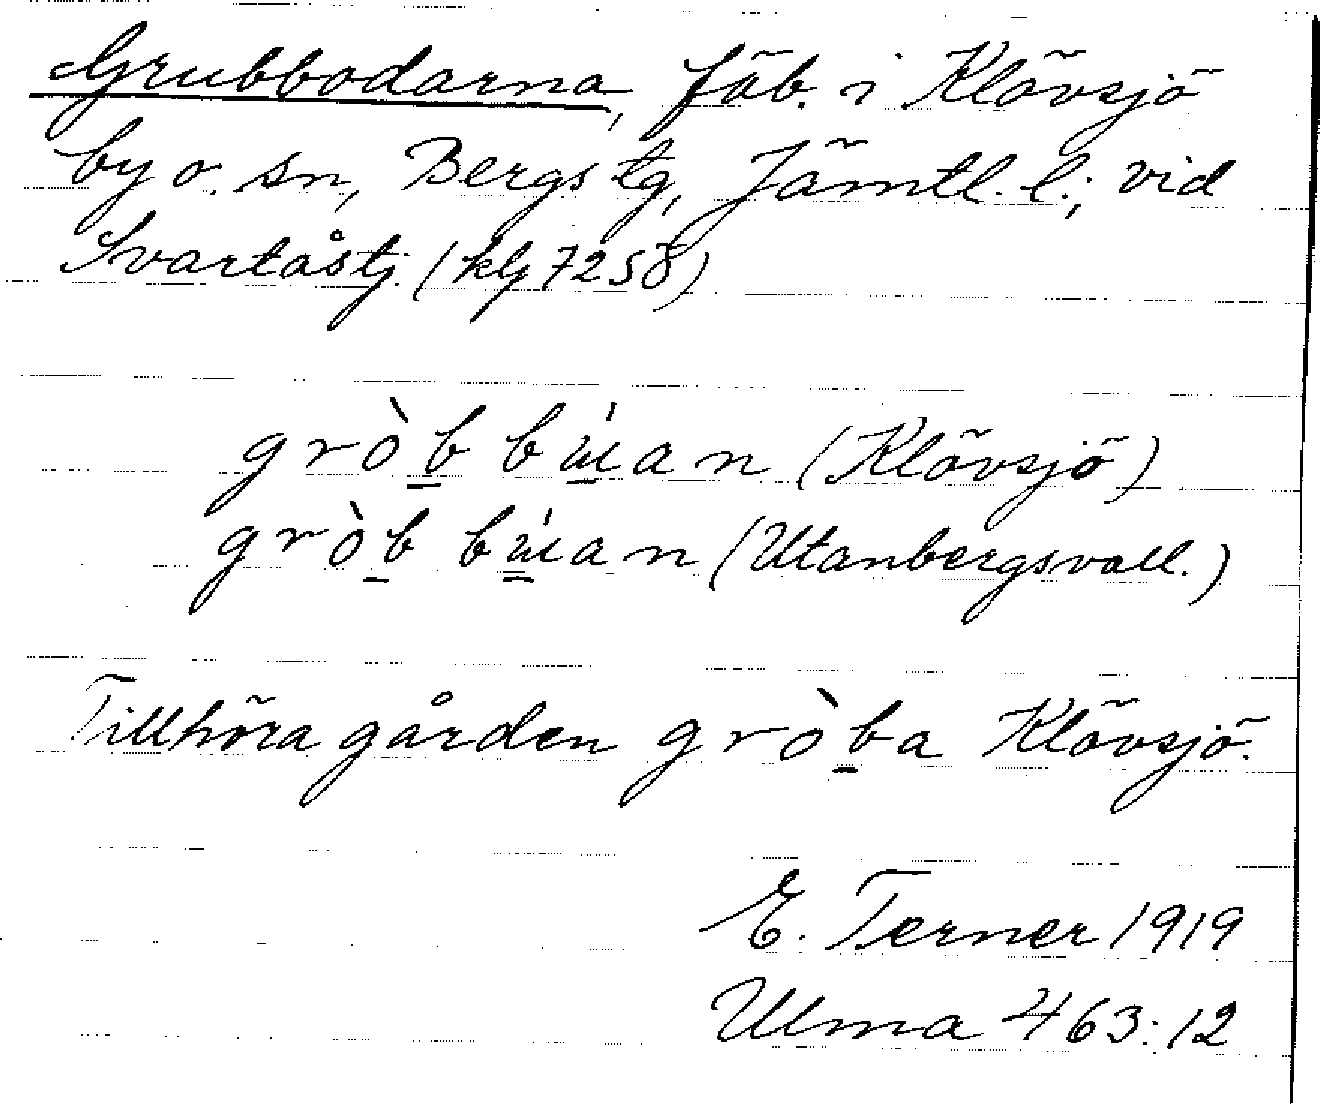 Grubbodarna, fäb. i Klövsjö
by o. sn, Bergs tg, Jämtl. l.; vid
Svartåstj. (klg 72 SÖ)
gròb bu̇́an (Klövsjö)
gròb bu̇́an (Utanbergsvall.)
Tillhöra gården gròba Klövsjö.
E. Terner 1919
Ulma 463:12